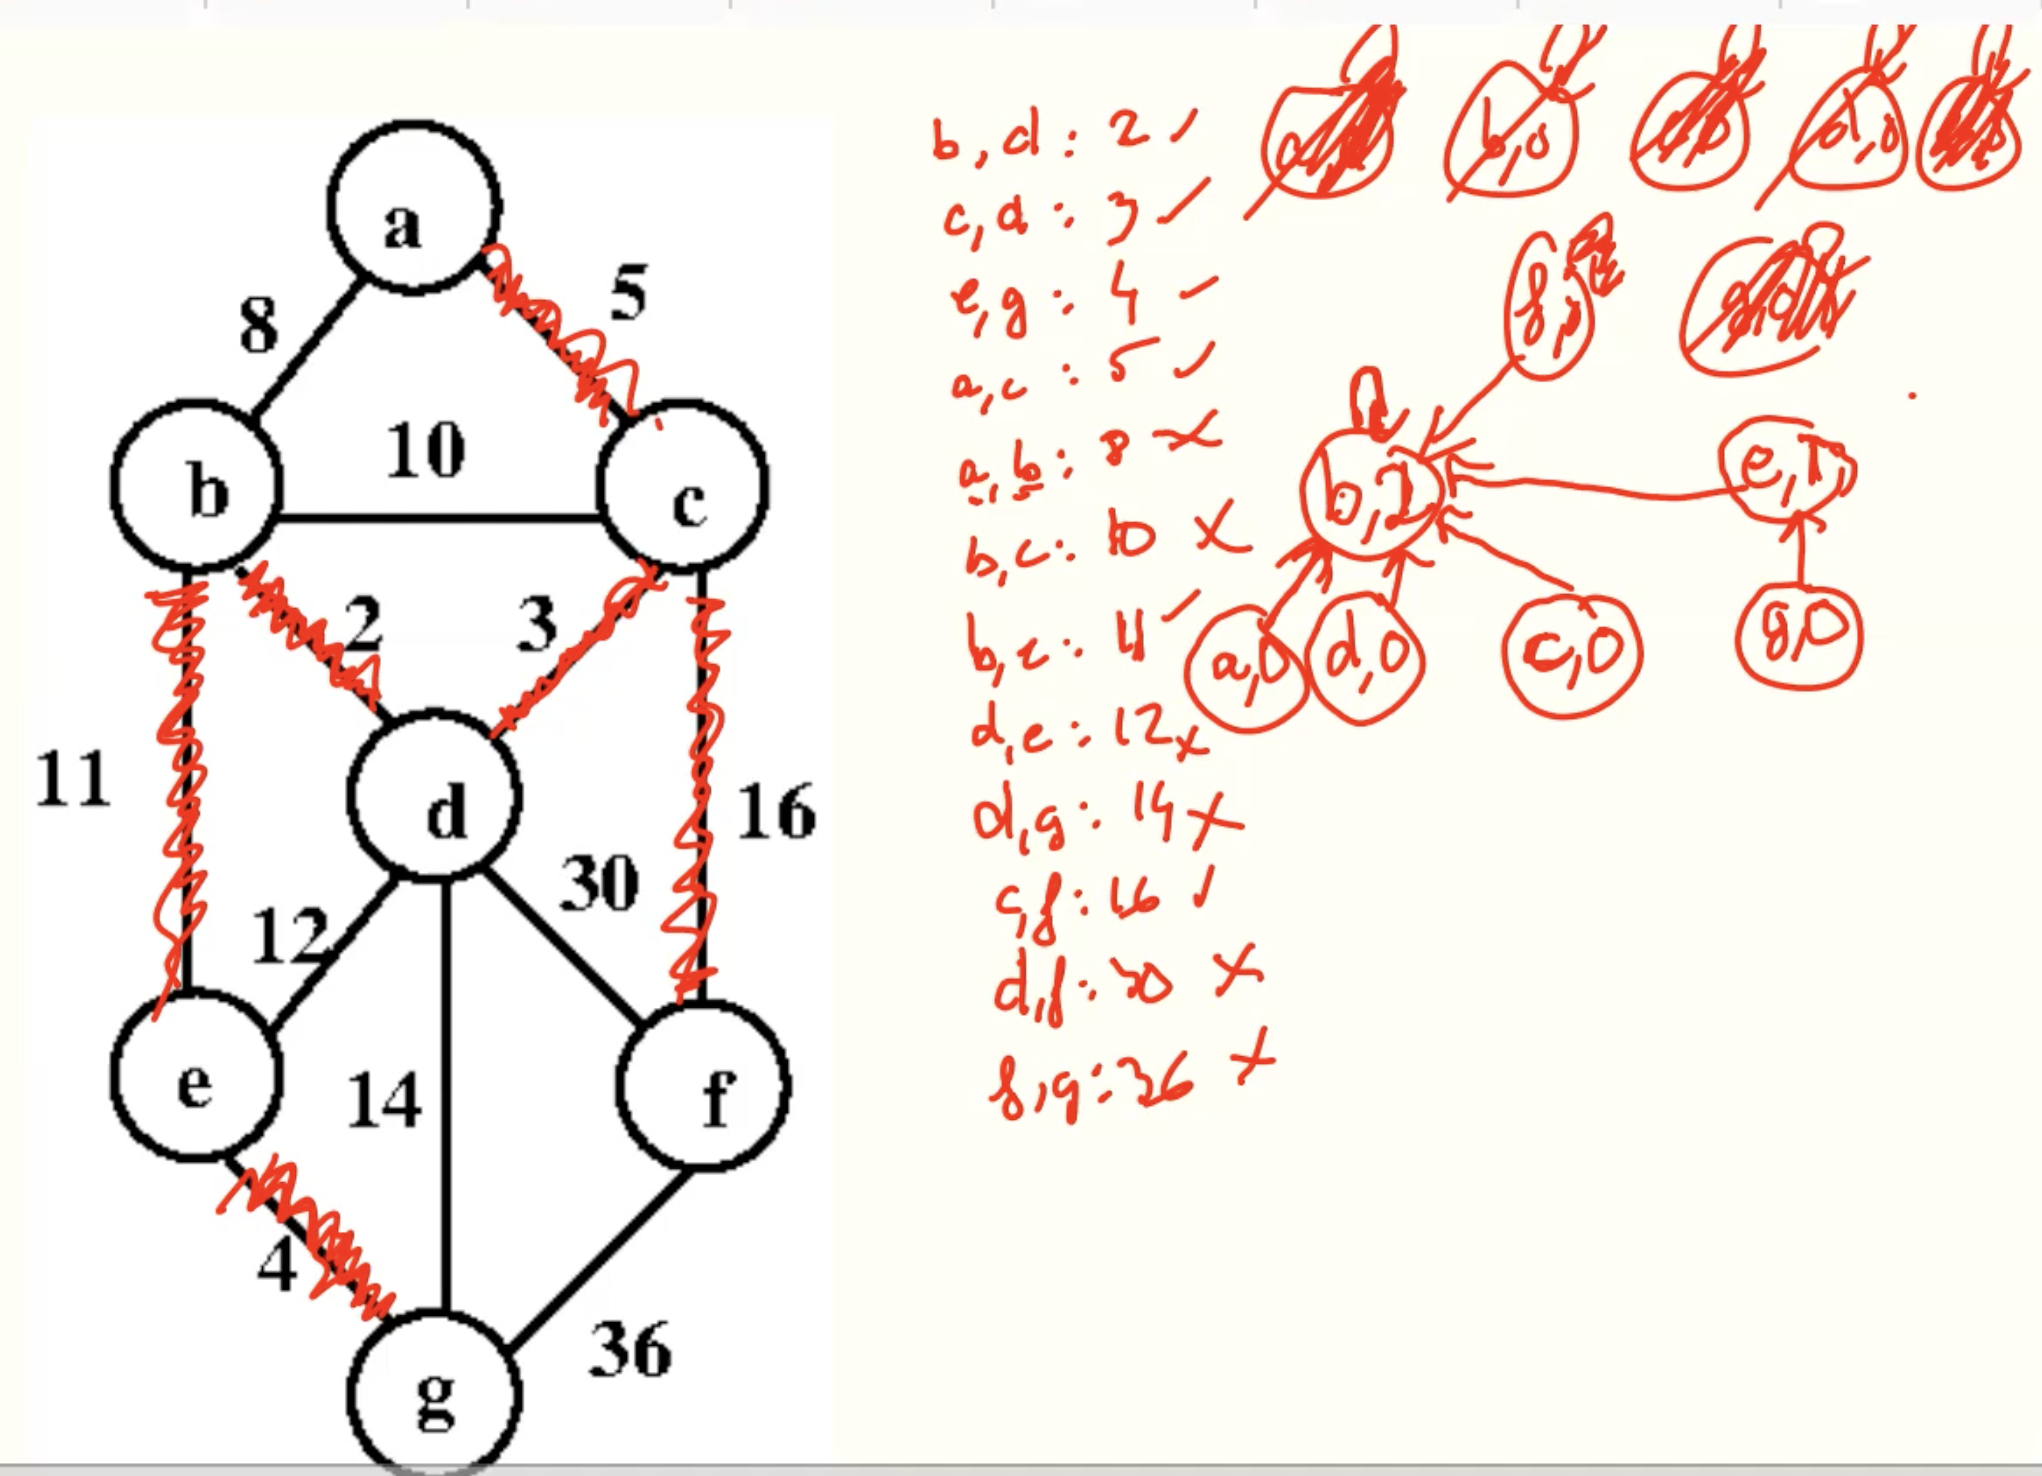 a
8
5
b
10
c
2
3
11
d
16
12
30
e
14
f
4
36
g
b,d: 2 ✓
c,d: 3 ✓
e,g: 4 ✓
a,c: 5 ✓
a,b: 8 ×
b,c: 10 ×
b,e: 11 ✓
d,e: 12 ×
d,g: 14 ×
c,f: 16 ✓
d,f: 30 ×
f,g: 36 ×
b,0
d,0
e,1
a,0
d,0
c,0
g,0